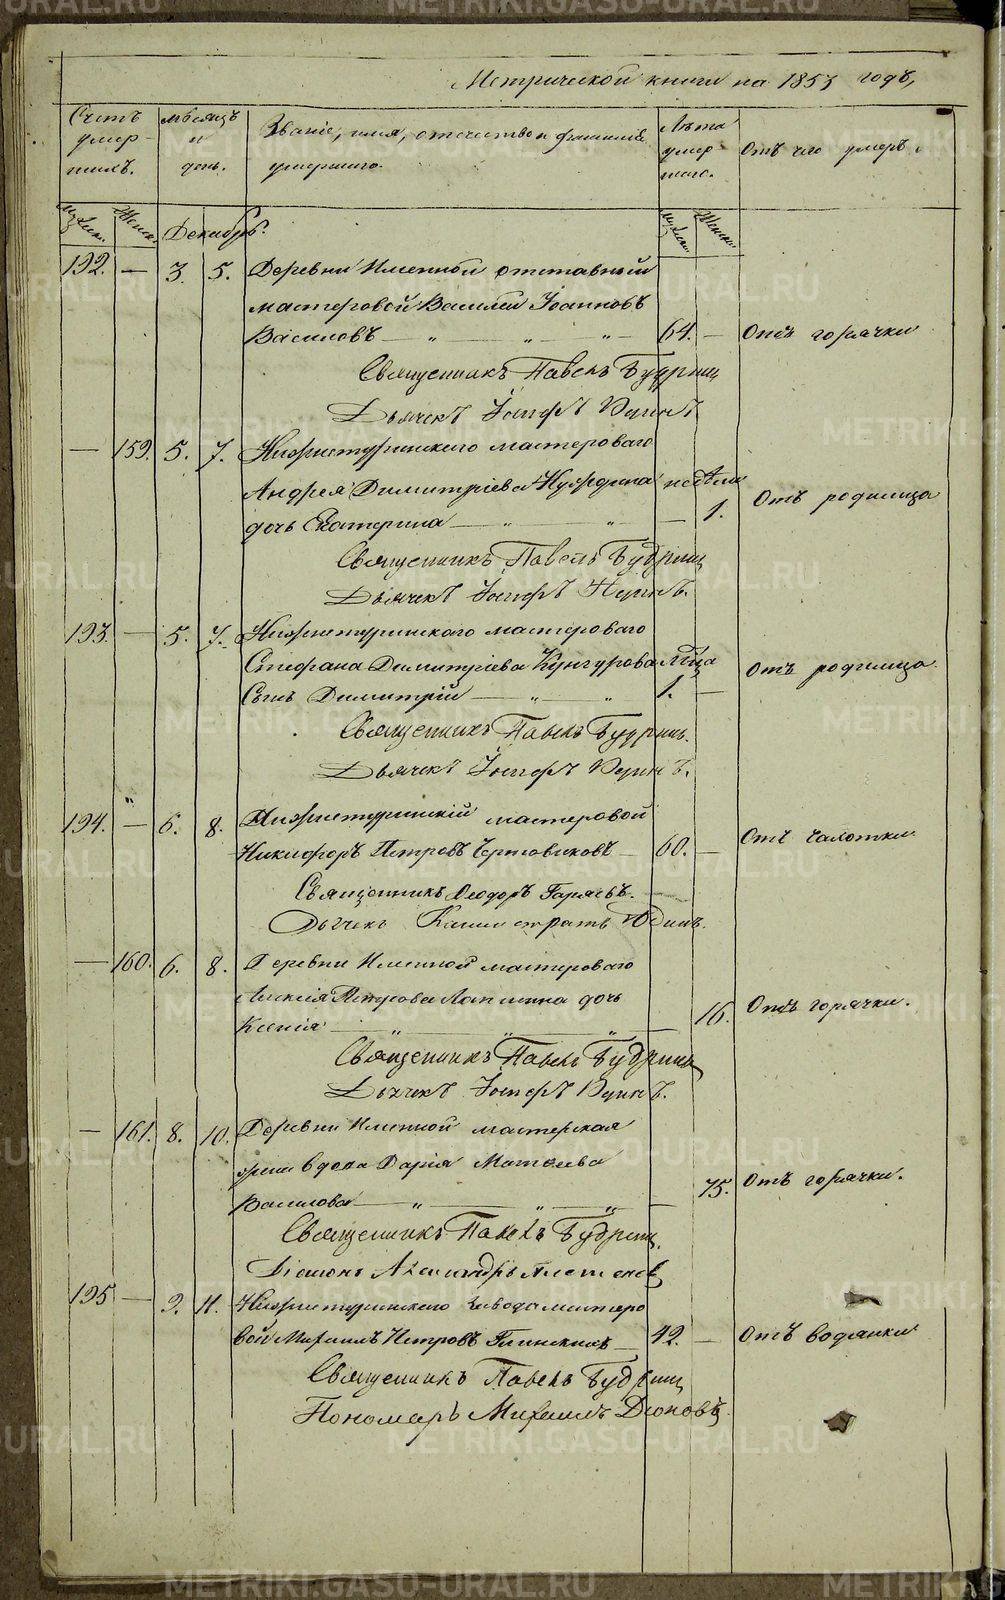 Метрической книги на 1853 годъ,
Счетъ умер-шихъ.
мѣсяцъ и день.
Званіе, имя, отечество и фамилія умершаго.
Лѣта умер-шаго.
Отъ чего умеръ.
Мужск. Женск. Декабрь. Мужск. Женск.
192. — 3. 5. Деревни Именной отставный
мастеровой Василій Іоанновъ
Василовъ — „ — „ — „ — 64. — Отъ горячки
Священникъ Павелъ Будринъ
Дьячекъ Іосифъ
— 159. 5. 7. Нижнетуринскаго мастероваго
Андрея Димитріева недѣли
дочь Екатерина — „ — „ — 1. Отъ родимца
Священникъ Павелъ Будринъ
Дьячекъ Іосифъ
193. — 5. 7. Нижнетуринскаго мастероваго
Стефана Димитріева Кунгурова мѣсяца
Сынъ Димитрій — „ — „ 1. — Отъ родимца.
Священникъ Павелъ Будринъ.
Дьячекъ Іосифъ
194. — 6. 8. Нижнетуринскій мастеровой
Никифоръ Петровъ — 60. — Отъ чахотки
Священникъ Ѳеодоръ Гаряевъ.
Дьячекъ Калистратъ Юдинъ.
— 160. 6. 8. Деревни Именной мастероваго
Алексія Петрова Лапшина дочь
Ксенія — „ — „ — „ — 16. Отъ горячки.
Священникъ Павелъ Будринъ
Дьячекъ Іосифъ
— 161. 8. 10. Деревни Именной мастерская
жена вдова Дарія Матѳеева
Василова — „ — „ — „ — 75. Отъ горячки.
Священникъ Павелъ Будринъ.
Діаконъ Александръ
195 — 9. 11. Нижнетуринскаго завода мастеро
вой Михаилъ Петровъ — 42. — Отъ водянки
Священникъ Павелъ Будринъ
Пономарь Михаилъ Діоновъ.
METRIKI.GASO-URAL.RU